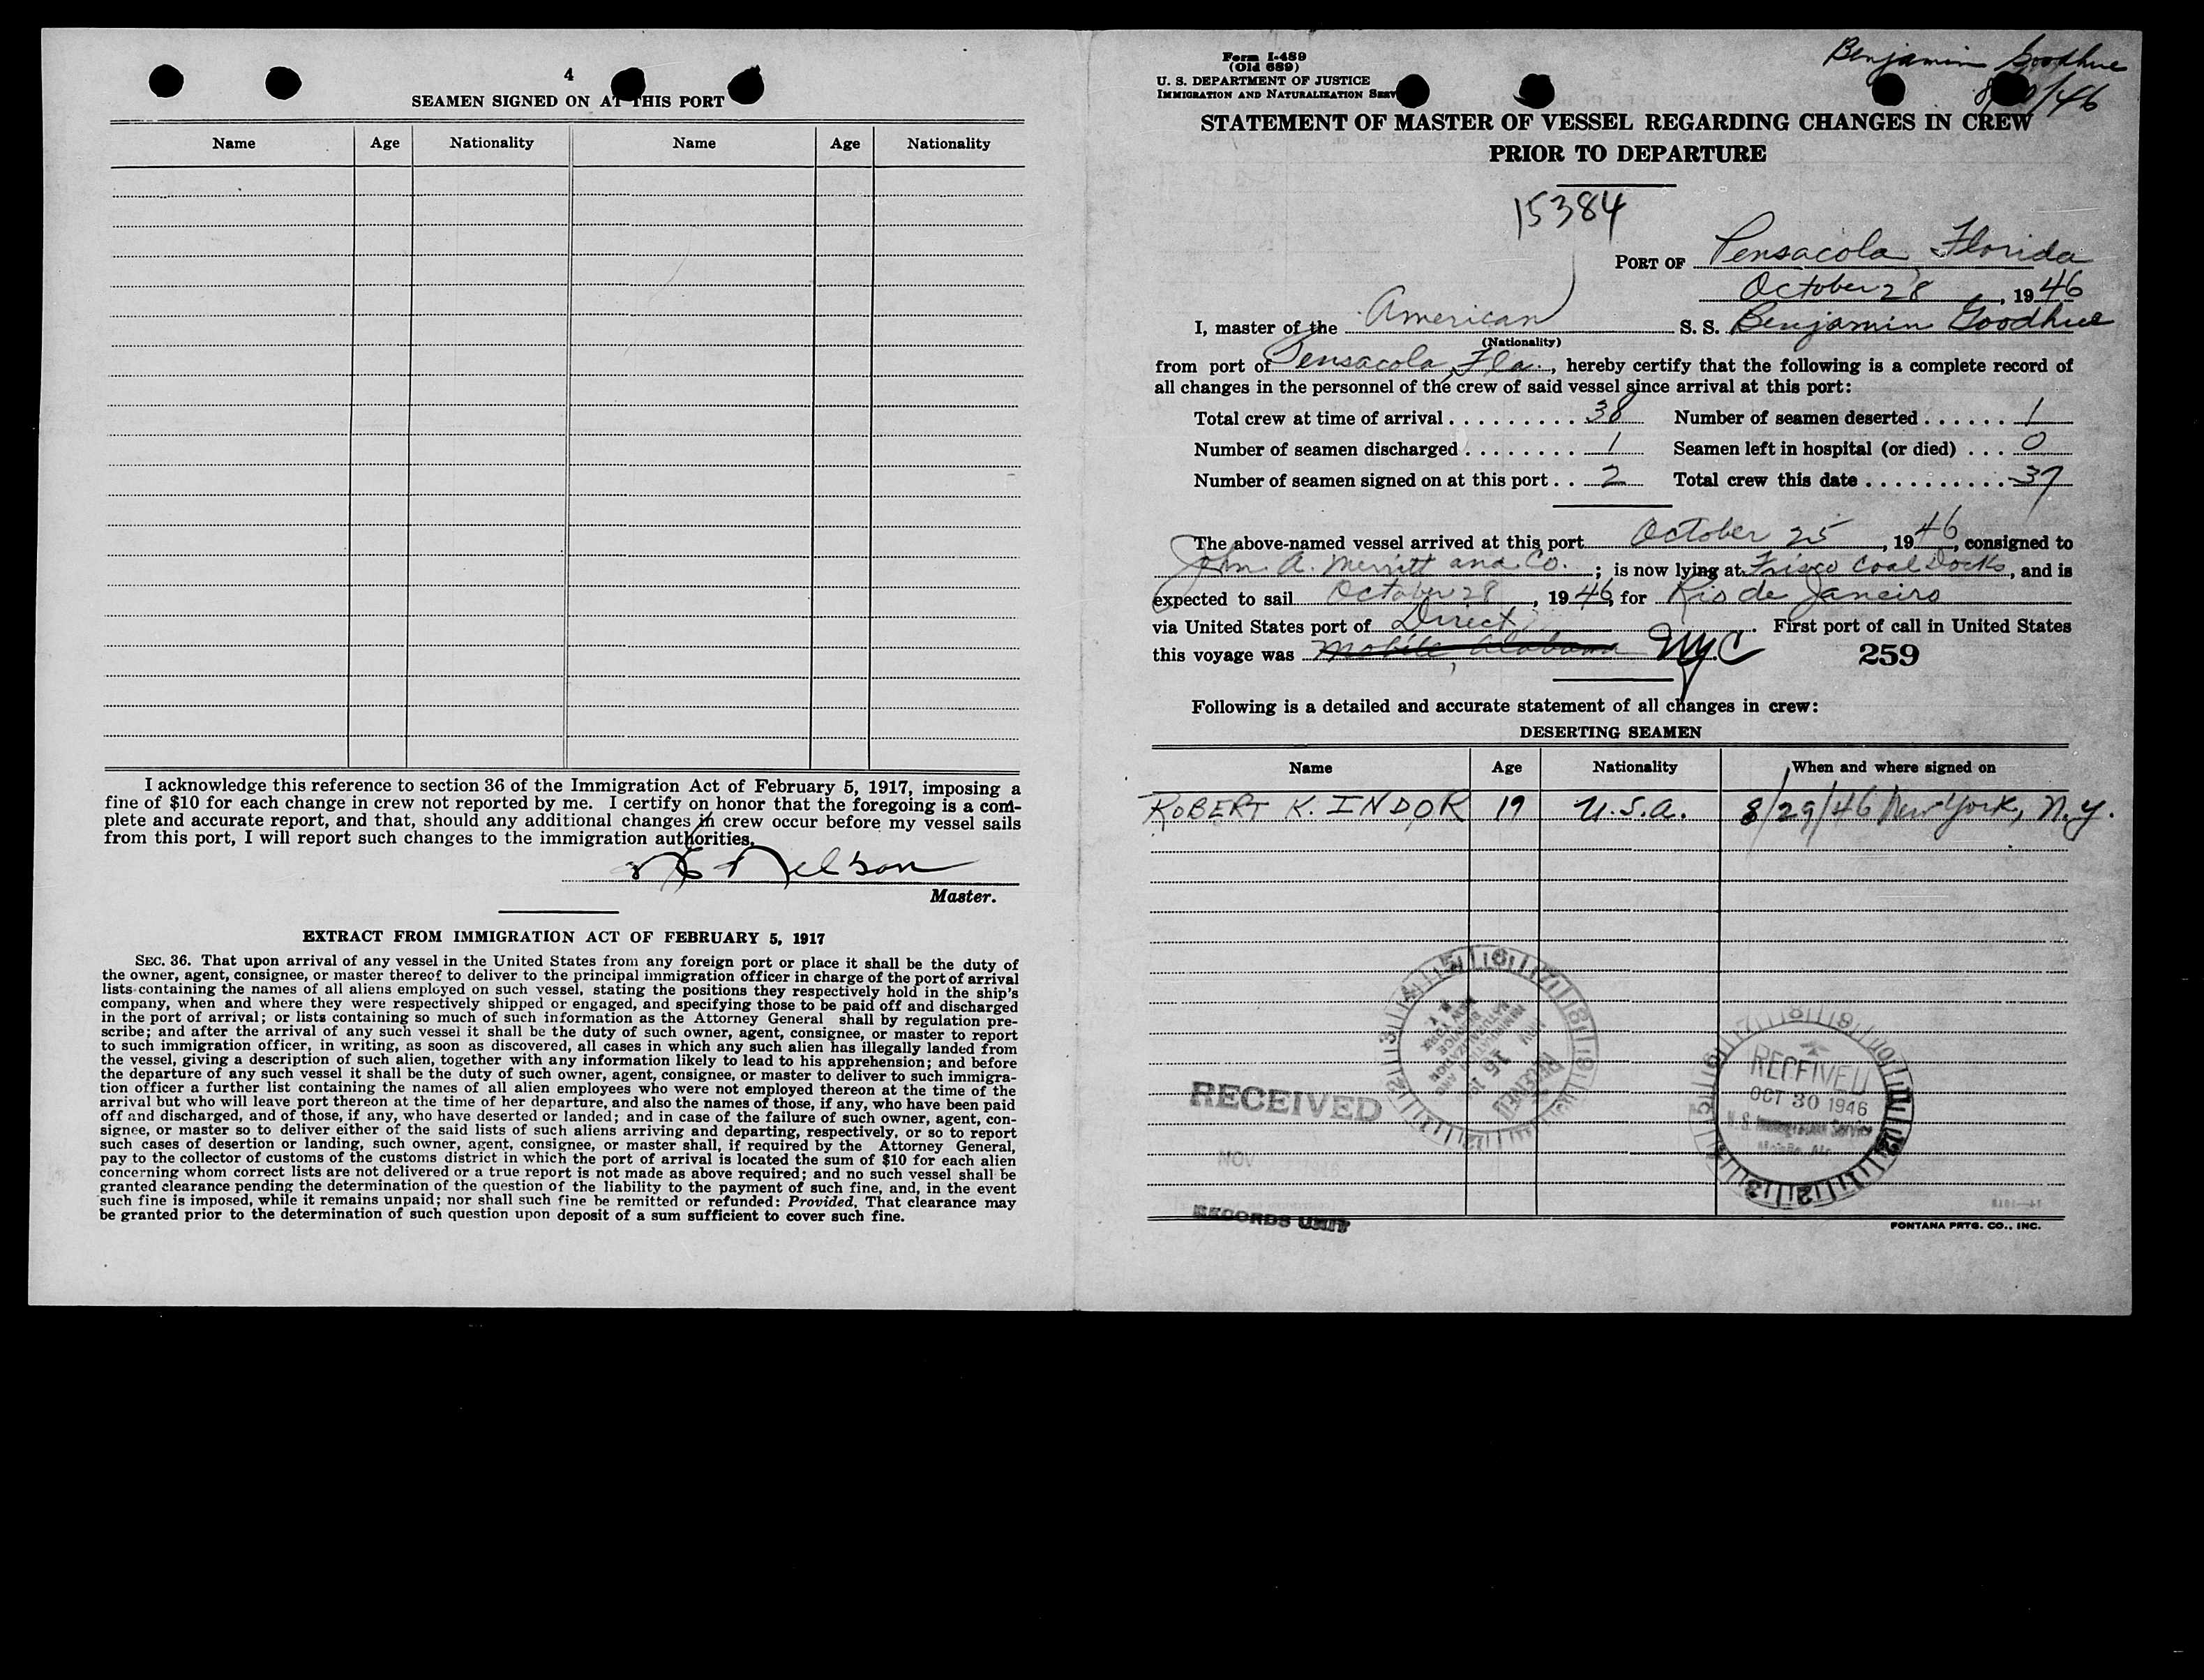 4
SEAMEN SIGNED ON AT THIS PORT
Name Age Nationality Name Age Nationality
I acknowledge this reference to section 36 of the Immigration Act of February 5, 1917, imposing a
fine of $10 for each change in crew not reported by me. I certify on honor that the foregoing is a com-
plete and accurate report, and that, should any additional changes in crew occur before my vessel sails
from this port, I will report such changes to the immigration authorities.
Nelson
Master.
EXTRACT FROM IMMIGRATION ACT OF FEBRUARY 5, 1917
SEC. 36. That upon arrival of any vessel in the United States from any foreign port or place it shall be the duty of
the owner, agent, consignee, or master thereof to deliver to the principal immigration officer in charge of the port of arrival
lists containing the names of all aliens employed on such vessel, stating the positions they respectively hold in the ship's
company, when and where they were respectively shipped or engaged, and specifying those to be paid off and discharged
in the port of arrival; or lists containing so much of such information as the Attorney General shall by regulation pre-
scribe; and after the arrival of any such vessel it shall be the duty of such owner, agent, consignee, or master to report
to such immigration officer, in writing, as soon as discovered, all cases in which any such alien has illegally landed from
the vessel, giving a description of such alien, together with any information likely to lead to his apprehension; and before
the departure of any such vessel it shall be the duty of such owner, agent, consignee, or master to deliver to such immigra-
tion officer a further list containing the names of all alien employees who were not employed thereon at the time of the
arrival but who will leave port thereon at the time of her departure, and also the names of those, if any, who have been paid
off and discharged, and of those, if any, who have deserted or landed; and in case of the failure of such owner, agent, con-
signee, or master so to deliver either of the said lists of such aliens arriving and departing, respectively, or so to report
such cases of desertion or landing, such owner, agent, consignee, or master shall, if required by the Attorney General,
pay to the collector of customs of the customs district in which the port of arrival is located the sum of $10 for each alien
concerning whom correct lists are not delivered or a true report is not made as above required; and no such vessel shall be
granted clearance pending the determination of the question of the liability to the payment of such fine, and, in the event
such fine is imposed, while it remains unpaid; nor shall such fine be remitted or refunded: Provided, That clearance may
be granted prior to the determination of such question upon deposit of a sum sufficient to cover such fine.
Form I-489
(Old 689)
U. S. DEPARTMENT OF JUSTICE
IMMIGRATION AND NATURALIZATION SERV
Benjamin Goodhue
/46
STATEMENT OF MASTER OF VESSEL REGARDING CHANGES IN CREW
PRIOR TO DEPARTURE
15384
PORT OF Pensacola, Florida
October 28, 1946
I, master of the American S. S. Benjamin Goodhue
(Nationality)
from port of Pensacola, Fla., hereby certify that the following is a complete record of
all changes in the personnel of the crew of said vessel since arrival at this port:
Total crew at time of arrival . . . . . . . . . . 38 Number of seamen deserted . . . . . . 1
Number of seamen discharged . . . . . . . . 1 Seamen left in hospital (or died) . . . 0
Number of seamen signed on at this port . . 2 Total crew this date . . . . . . . . . . 37
The above-named vessel arrived at this port October 25, 1946, consigned to
John A. Merritt and Co.; is now lying at Frisco Coal Docks, and is
expected to sail October 28, 1946, for Rio de Janeiro
via United States port of Direct. First port of call in United States
this voyage was Mobile, Alabama NYC 259
Following is a detailed and accurate statement of all changes in crew:
DESERTING SEAMEN
Name Age Nationality When and where signed on
ROBERT K. INDOR 19 U.S.A. 8/29/46 New York, N.Y.
RECEIVED
NOV
RECORDS UNIT
RECEIVED
RECEIVED
OCT 30 1946
U. S. Immigration Service
Mobile, Ala.
FONTANA PRTG. CO., INC.